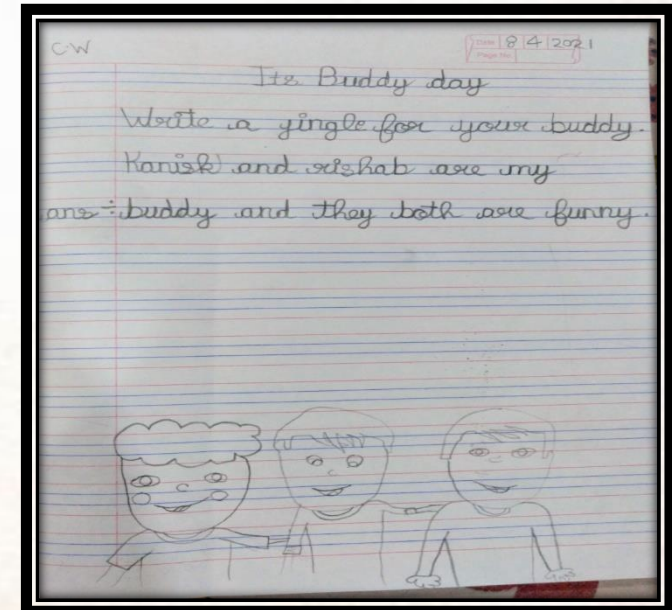 C.W
Date 8 4 2021
Page No.
Its Buddy day
Write a yingle for your buddy.
Kanisk and rishab are my
ans÷ buddy and they both are funny.